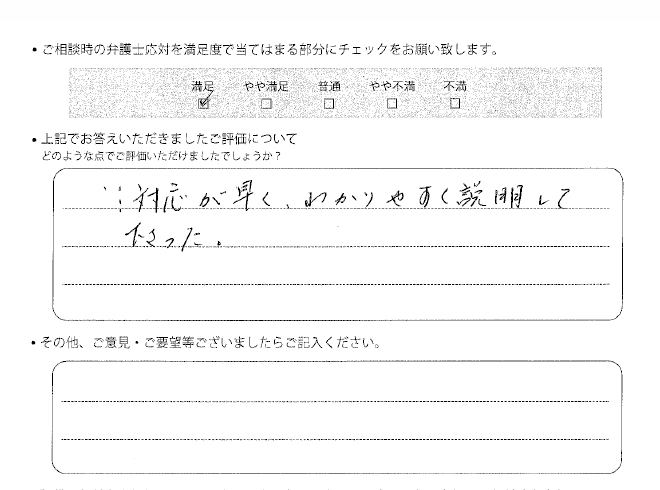 ・ご相談時の弁護士応対を満足度で当てはまる部分にチェックをお願い致します。
満足 やや満足 普通 やや不満 不満
☑ □ □ □ □
・上記でお答えいただきましたご評価について
どのような点でご評価いただけましたでしょうか？
対応が早く、わかりやすく説明して
下さった。
・その他、ご意見・ご要望等ございましたらご記入ください。